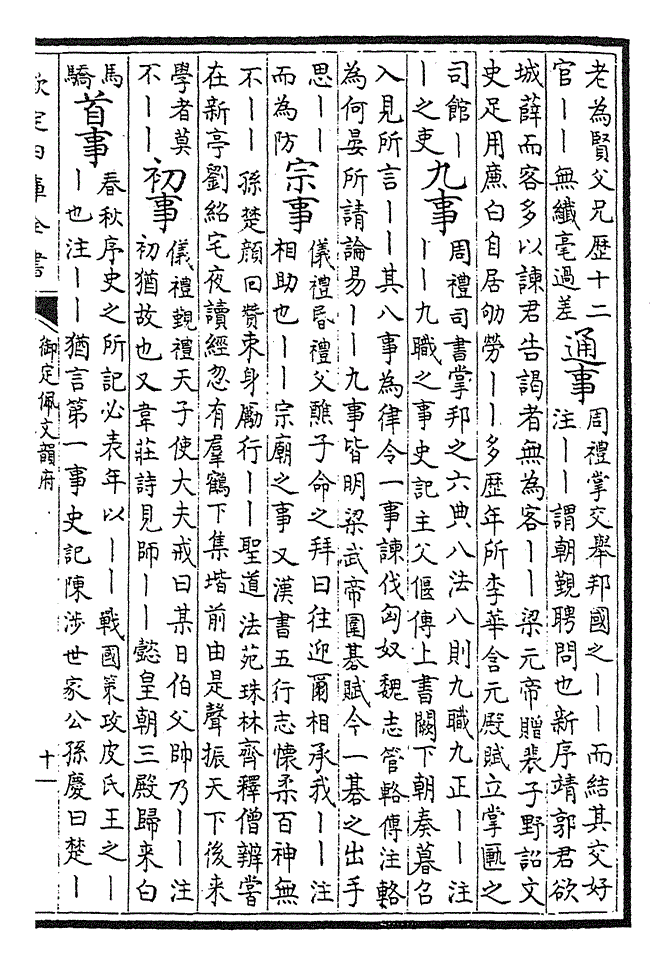 老為賢父兄歷十二
官丨丨無纖毫過差
通事
周禮掌交舉邦國之丨丨而結其交好
注丨丨謂朝覲聘問也新序靖郭君欲
城薛而客多以諫君告謁者無為客丨丨梁元帝贈裴子野詔文
史足用廉白自居劬勞丨丨多歷年所李華含元殿賦立掌匭之
司館丨
丨之吏
九事
周禮司書掌邦之六典八法八則九職九正丨丨注
丨丨九職之事史記主父偃傳上書闕下朝奏暮召
入見所言丨丨其八事為律令一事諫伐匈奴魏志管輅傳注輅
為何晏所請論易丨丨九事皆明梁武帝圍碁賦今一碁之出手
思丨丨
而為防
宗事
儀禮昬禮父醮子命之拜曰往迎爾相承我丨丨注
相助也丨丨宗廟之事又漢書五行志懷柔百神無
不丨丨孫楚顔回贊束身勵行丨丨聖道法苑珠林齊釋僧辨嘗
在新亭劉紹宅夜讀經忽有羣鶴下集堦前由是聲振天下後来
學者莫
不丨丨
初事
儀禮覲禮天子使大夫戒曰某日伯父帥乃丨丨注
初猶故也又韋莊詩見師丨丨懿皇朝三殿歸来白
馬
驕
首事
春秋序史之所記必表年以丨丨戰國策攻皮氏王之丨
丨也注丨丨猶言第一事史記陳涉世家公孫慶曰楚丨
欽定四庫全書
御定佩文韻府
十一